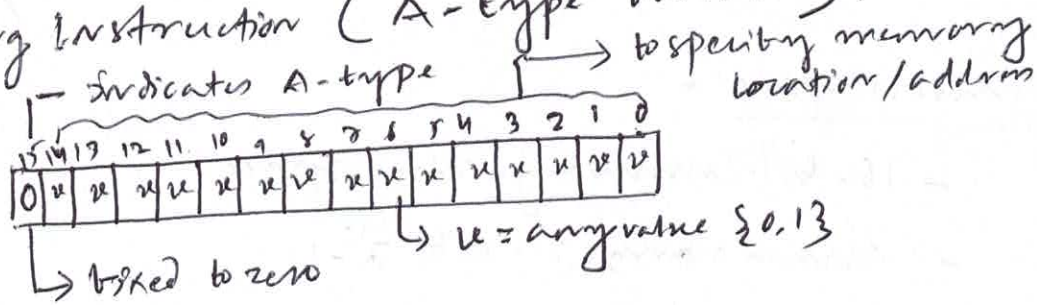 g Instruction ( A-type
→ to specify memory
location/address
Indicates A-type
15 14 13 12 11 10 9 8 7 6 5 4 3 2 1 0
0 v v v v v v v v v v v v v v v
↳ v = any value {0,1}
↳ fixed to zero